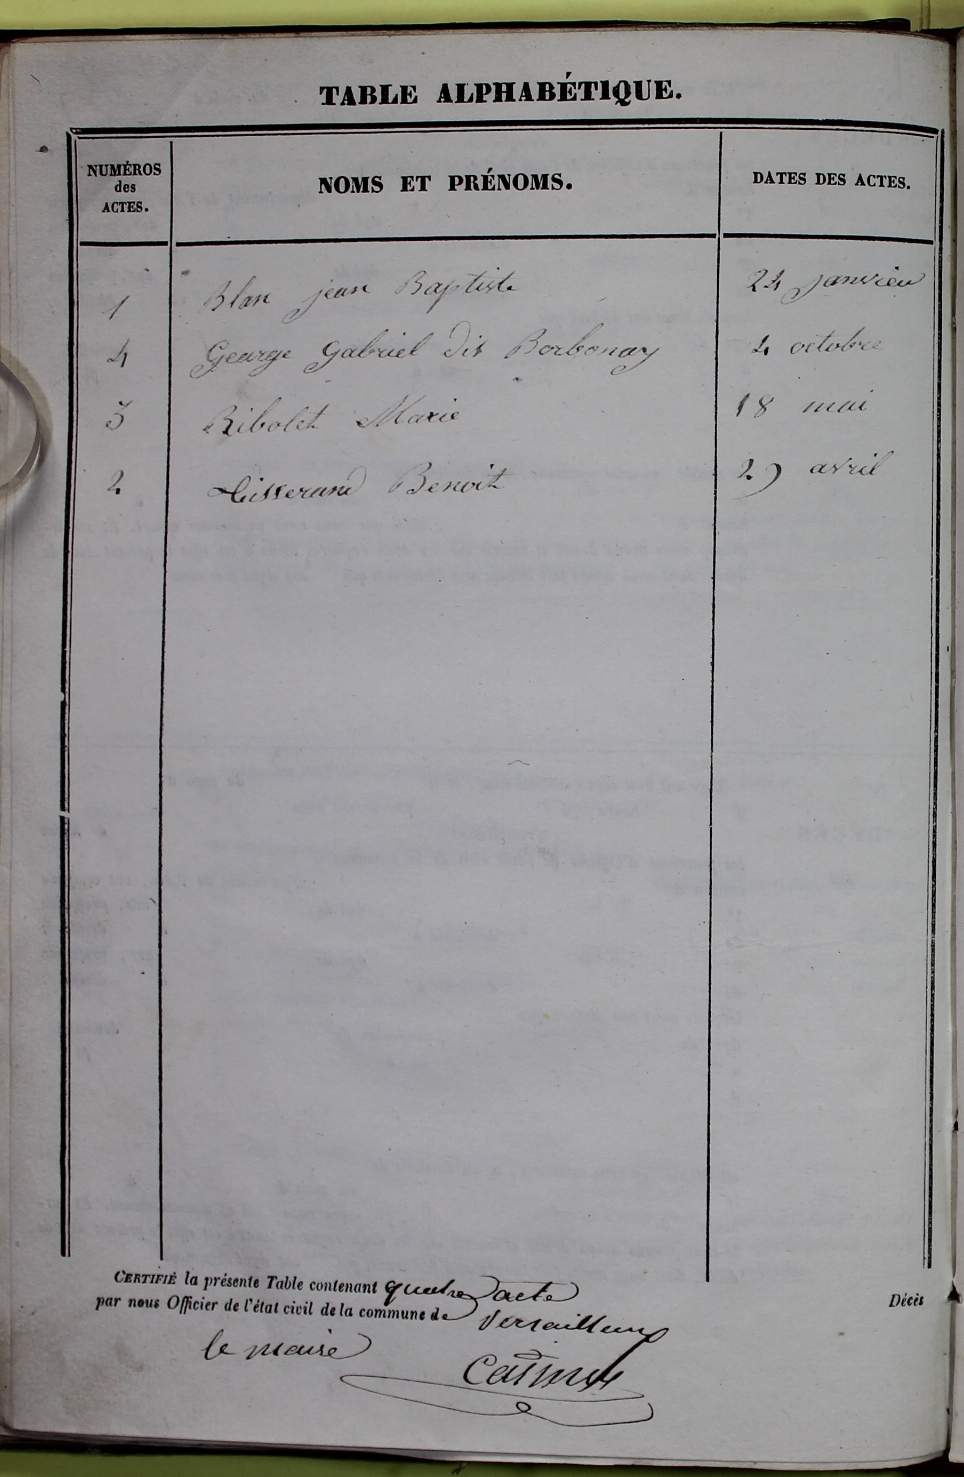 TABLE ALPHABÉTIQUE.
NUMÉROS
des
ACTES.
NOMS ET PRÉNOMS.
DATES DES ACTES.
1 Blan jean Baptiste 24 janvier
4 George gabriel dit Borbonay 4 octobre
3 Ribolet Marie 18 mai
2 tisserand Benoit 29 avril
CERTIFIÉ la présente Table contenant quatre acte
par nous Officier de l'état civil de la commune de Versailleux
Décès
le maire